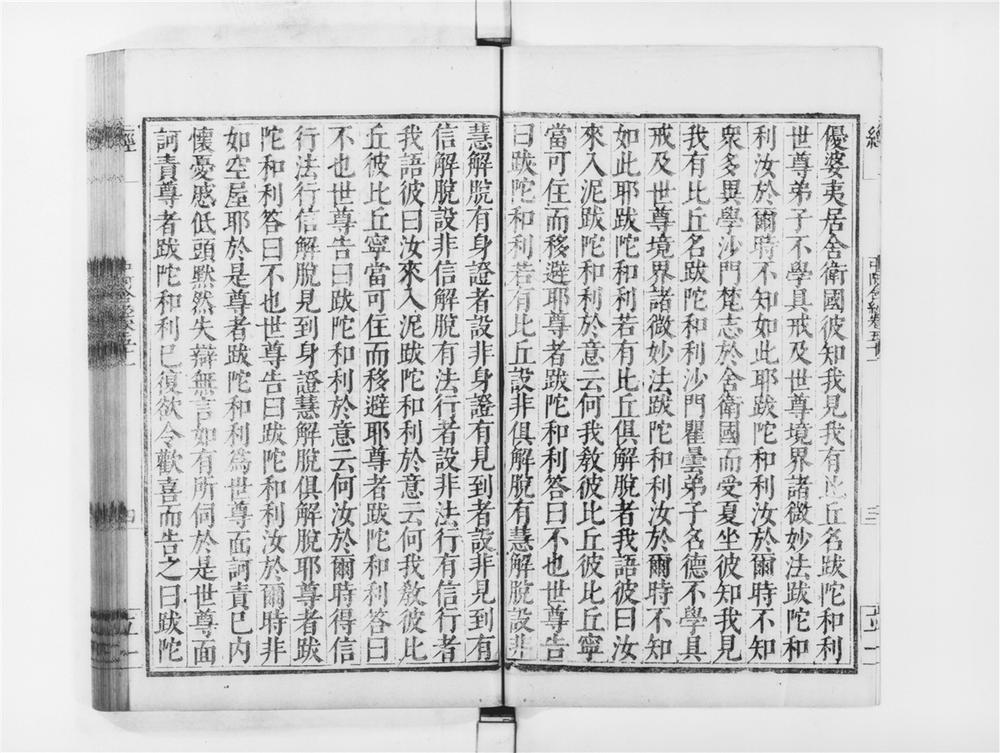 優婆夷居舍衛國彼知我見我有比丘名跋陀和利
世尊弟子不學具戒及世尊境界諸微妙法跋陀和
利汝於爾時不知如此耶跋陀和利汝於爾時不知
衆多異學沙門梵志於舍衛國而受夏坐彼知我見
我有比丘名跋陀和利沙門瞿曇弟子名德不學具
戒及世尊境界諸微妙法跋陀和利汝於爾時不知
如此耶跋陀和利若有比丘俱解脫者我語彼曰汝
來入泥跋陀和利於意云何我教彼比丘彼比丘寧
當可住而移避耶尊者跋陀和利答曰不也世尊告
曰跋陀和利若有比丘設非俱解脫有慧解脫設非
慧解脫有身證者設非身證有見到者設非見到有
信解脫設非信解脫有法行者設非法行有信行者
我語彼曰汝來入泥跋陀和利於意云何我教彼比
丘彼比丘寧當可住而移避耶尊者跋陀和利答曰
不也世尊告曰跋陀和利於意云何汝於爾時得信
行法行信解脫見到身證慧解脫俱解脫耶尊者跋
陀和利答曰不也世尊告曰跋陀和利汝於爾時非
如空屋耶於是尊者跋陀和利為世尊面訶責已內
懷憂慼低頭默然失辯無言如有所伺於是世尊面
訶責尊者跋陀和利已復欲令歡喜而告之曰跋陀